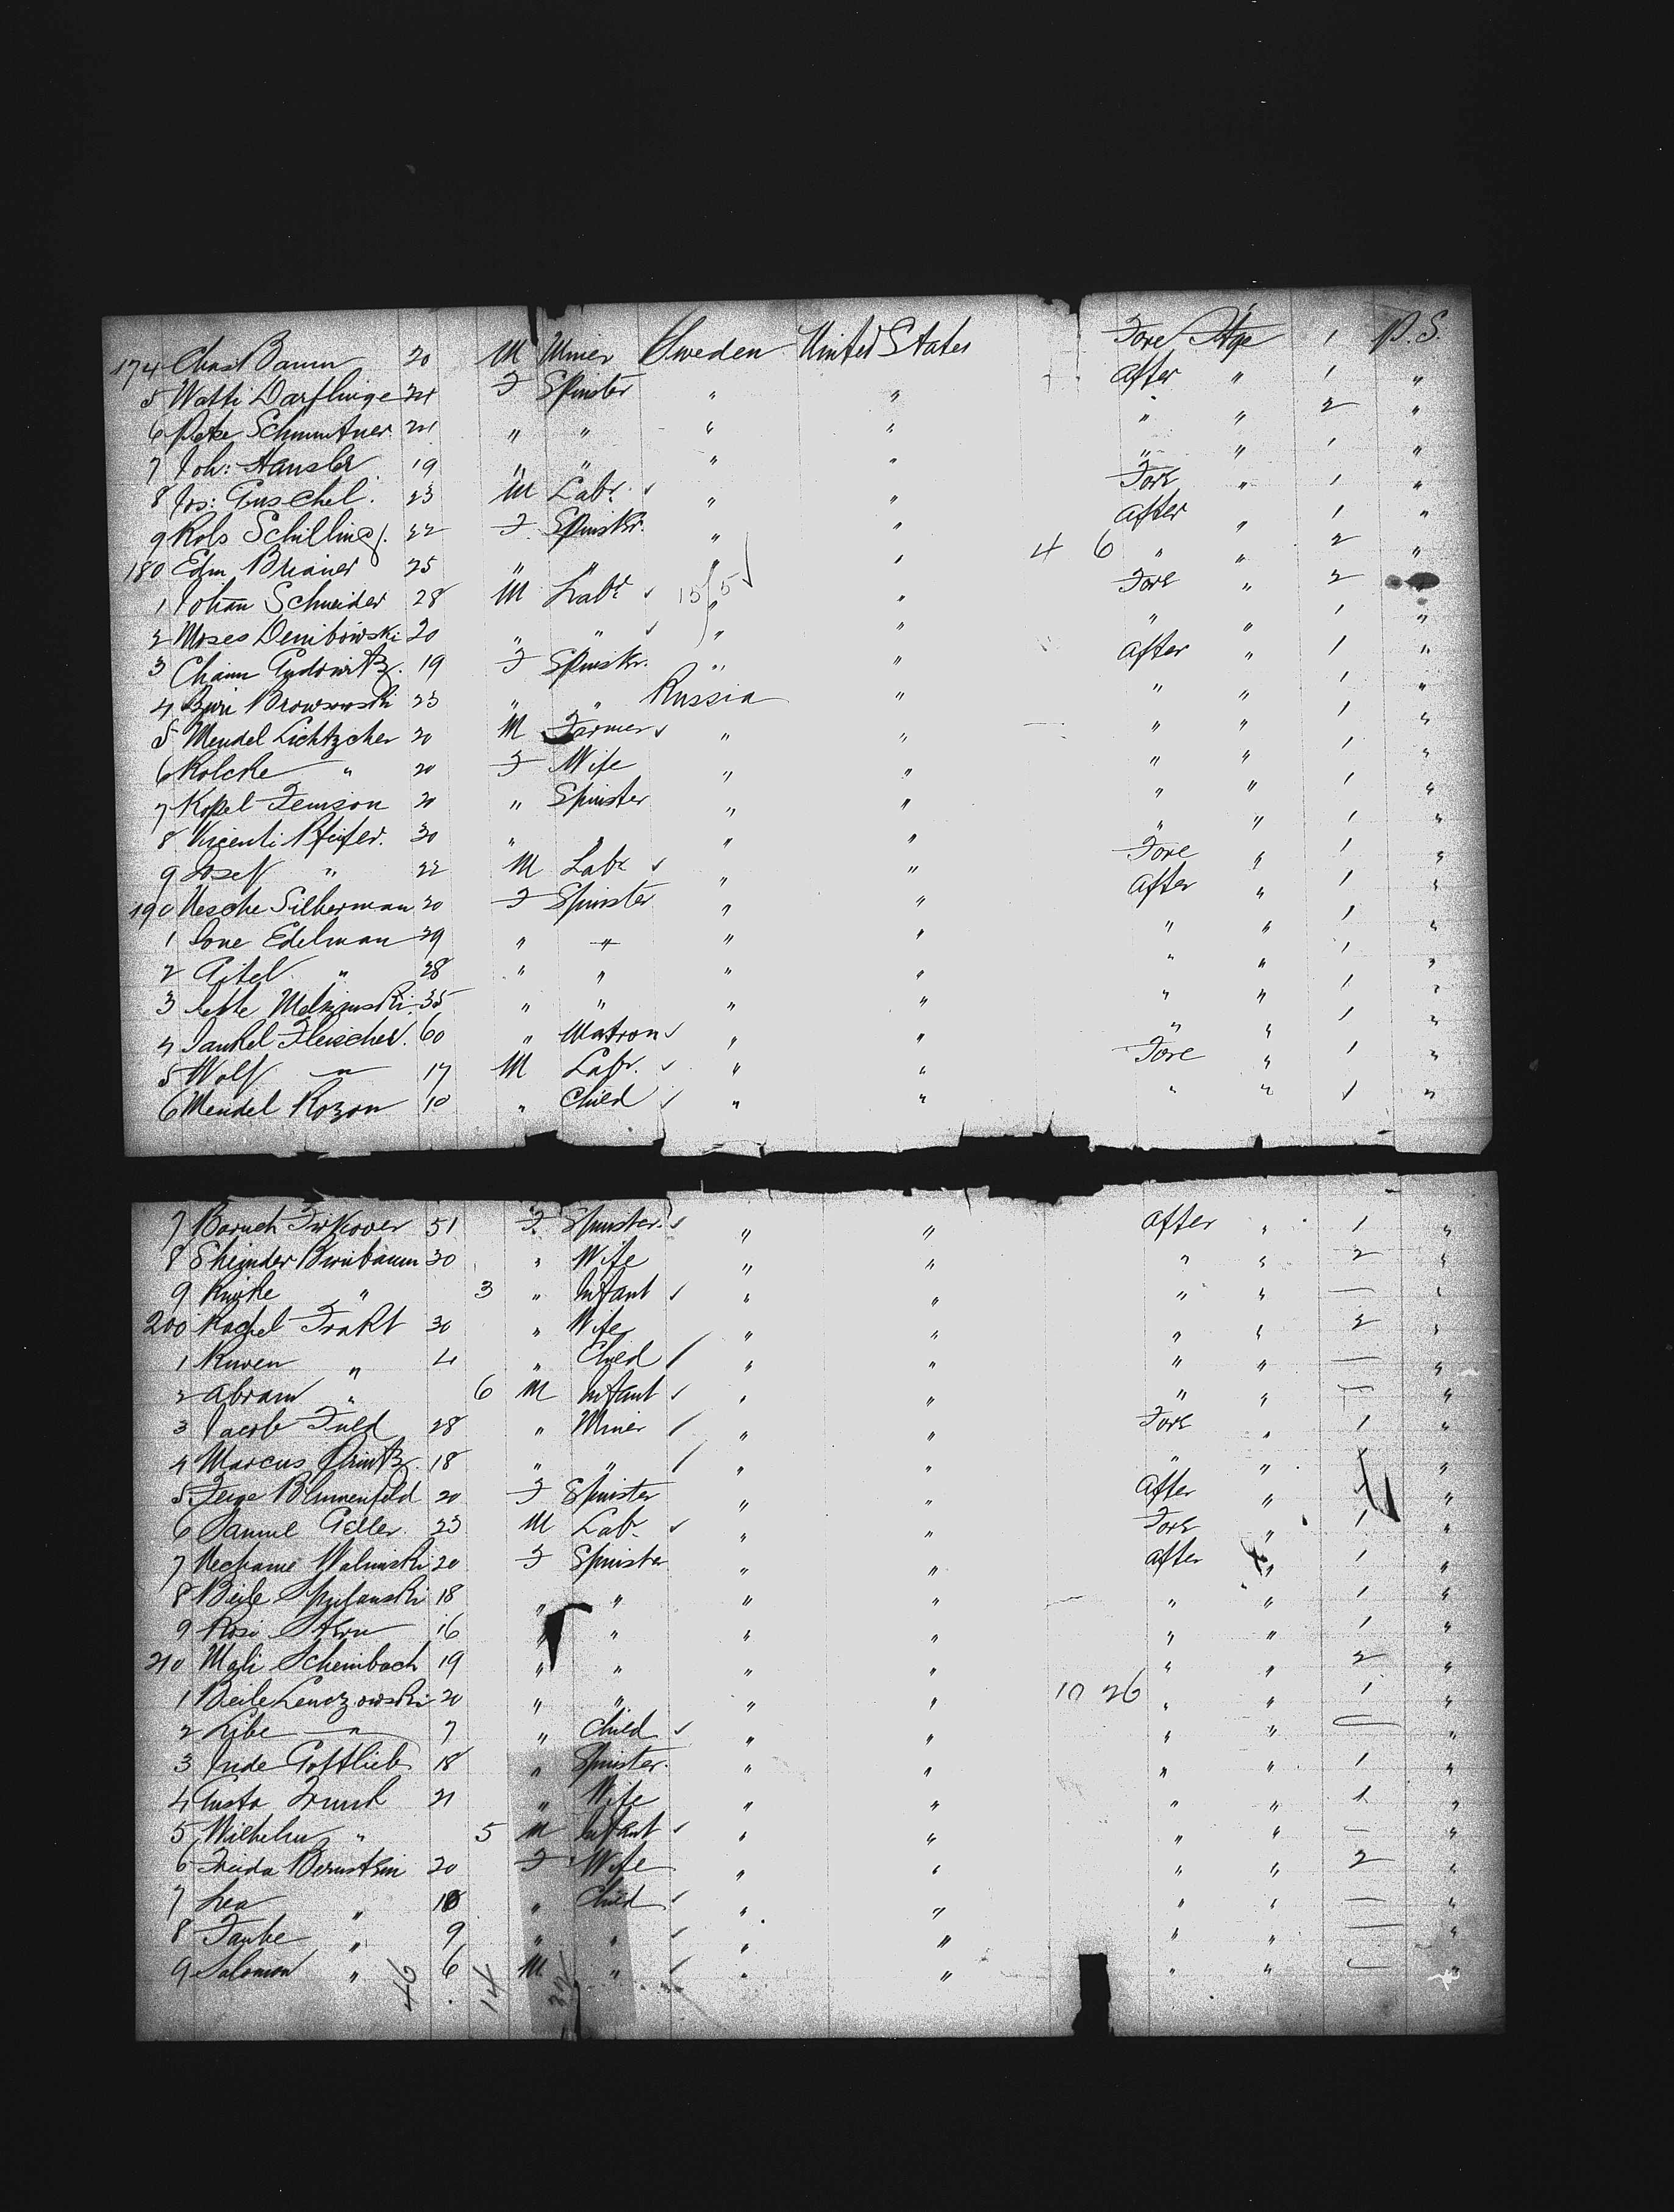 174 Chas Baum 20 M Miner Sweden United States Fore Stge 1 P.S.
5 Watti Darflinge 24 F Spinster " " After " 1 "
6 Peke Schmuntner 21 " " " " " " 2 "
7 Joh: Hansler 19 " " " " " " 1 "
8 Jos: Guschel. 23 M Labr. ✓ " " Fore " 1 "
9 Robs Schilling. 22 F. Spinstr. " " After " 1 "
180 Edm Briauer 25 " " " " 4 6 " " 2 "
1 Johan Schneider 28 M Labr ✓ 15/5 " " Fore " 2 "
2 Moses Dembowski 20 " " ✓ " " " " 1 "
3 Chaim Gudowitz. 19 F Spinstr. " " After " 1 "
4 Browsowski 23 " " Russia " " " 1 "
5 Mendel Lichtzcher 20 M Farmer ✓ " " " " 1 "
6 Rolcke " 20 F Wife " " " " 1 "
7 Kopel Femson 20 " Spinster " " " " 1 "
8 Vicenti Pfeifer. 30 " " " " " " 1 "
9 Josef " 22 M Labr ✓ " " Fore " 1 "
190 Nesche Silberman 20 F Spinster " " After " 1 "
1 Ione Edelman 29 " " " " " " 1 "
2 Gitel " 28 " " " " " " 1 "
3 35 " " " " " " 1 "
4 Jankel Fleischer. 60 " Matron ✓ " " " " 1 "
5 Wolf " 17 M Labr. ✓ " " Fore " 1 "
6 Mendel Rozon 10 " Child ✓ " " " " 1 "
7 Baruch Firkover 51 F. Spinster. ✓ " " After " 1 "
8 Sheinder Birnbaum 30 " Wife " " " " 2 "
9 " 3 " Infant ✓ " " " " — "
200 Rachel Trakt 30 " Wife " " " " 2 "
1 Ruwen " 4 " Child ✓ " " " " — "
2 Abram " 6 M Infant ✓ " " " " — "
3 Jacob Fuld 28 " Miner ✓ " " Fore " 1 "
4 Marcus 18 " " ✓ " " " " "
5 Feige Blumenfeld 20 F Spinster " " After " "
6 Samuel Geller 23 M Labr ✓ " " Fore " 1 "
7 Nechame Walinski 20 F Spinster " " After " 1 "
8 Beile 18 " " " " " " 1 "
9 Rosi Stern 16 " " " " " " 1 "
210 Mali Scheinbach 19 " " " " " " 2 "
1 Beile Lenczowski 20 " " " " 10 26 " " 1 "
2 Libe " 7 " Child ✓ " " " " — "
3 Inde Gottlieb 18 " Spinster. " " " " 1 "
4 Gusta 21 " Wife " " " " 1 "
5 Wilhelm " 5 M Infant ✓ " " " " — "
6 Freida Bernstein 20 F Wife " " " " 2 "
7 Lea " 10 " Child ✓ " " " " — "
8 Taube " 9 " " ✓ " " " " — "
9 Salomon " 6 M " ✓ " " " " — "
46 14